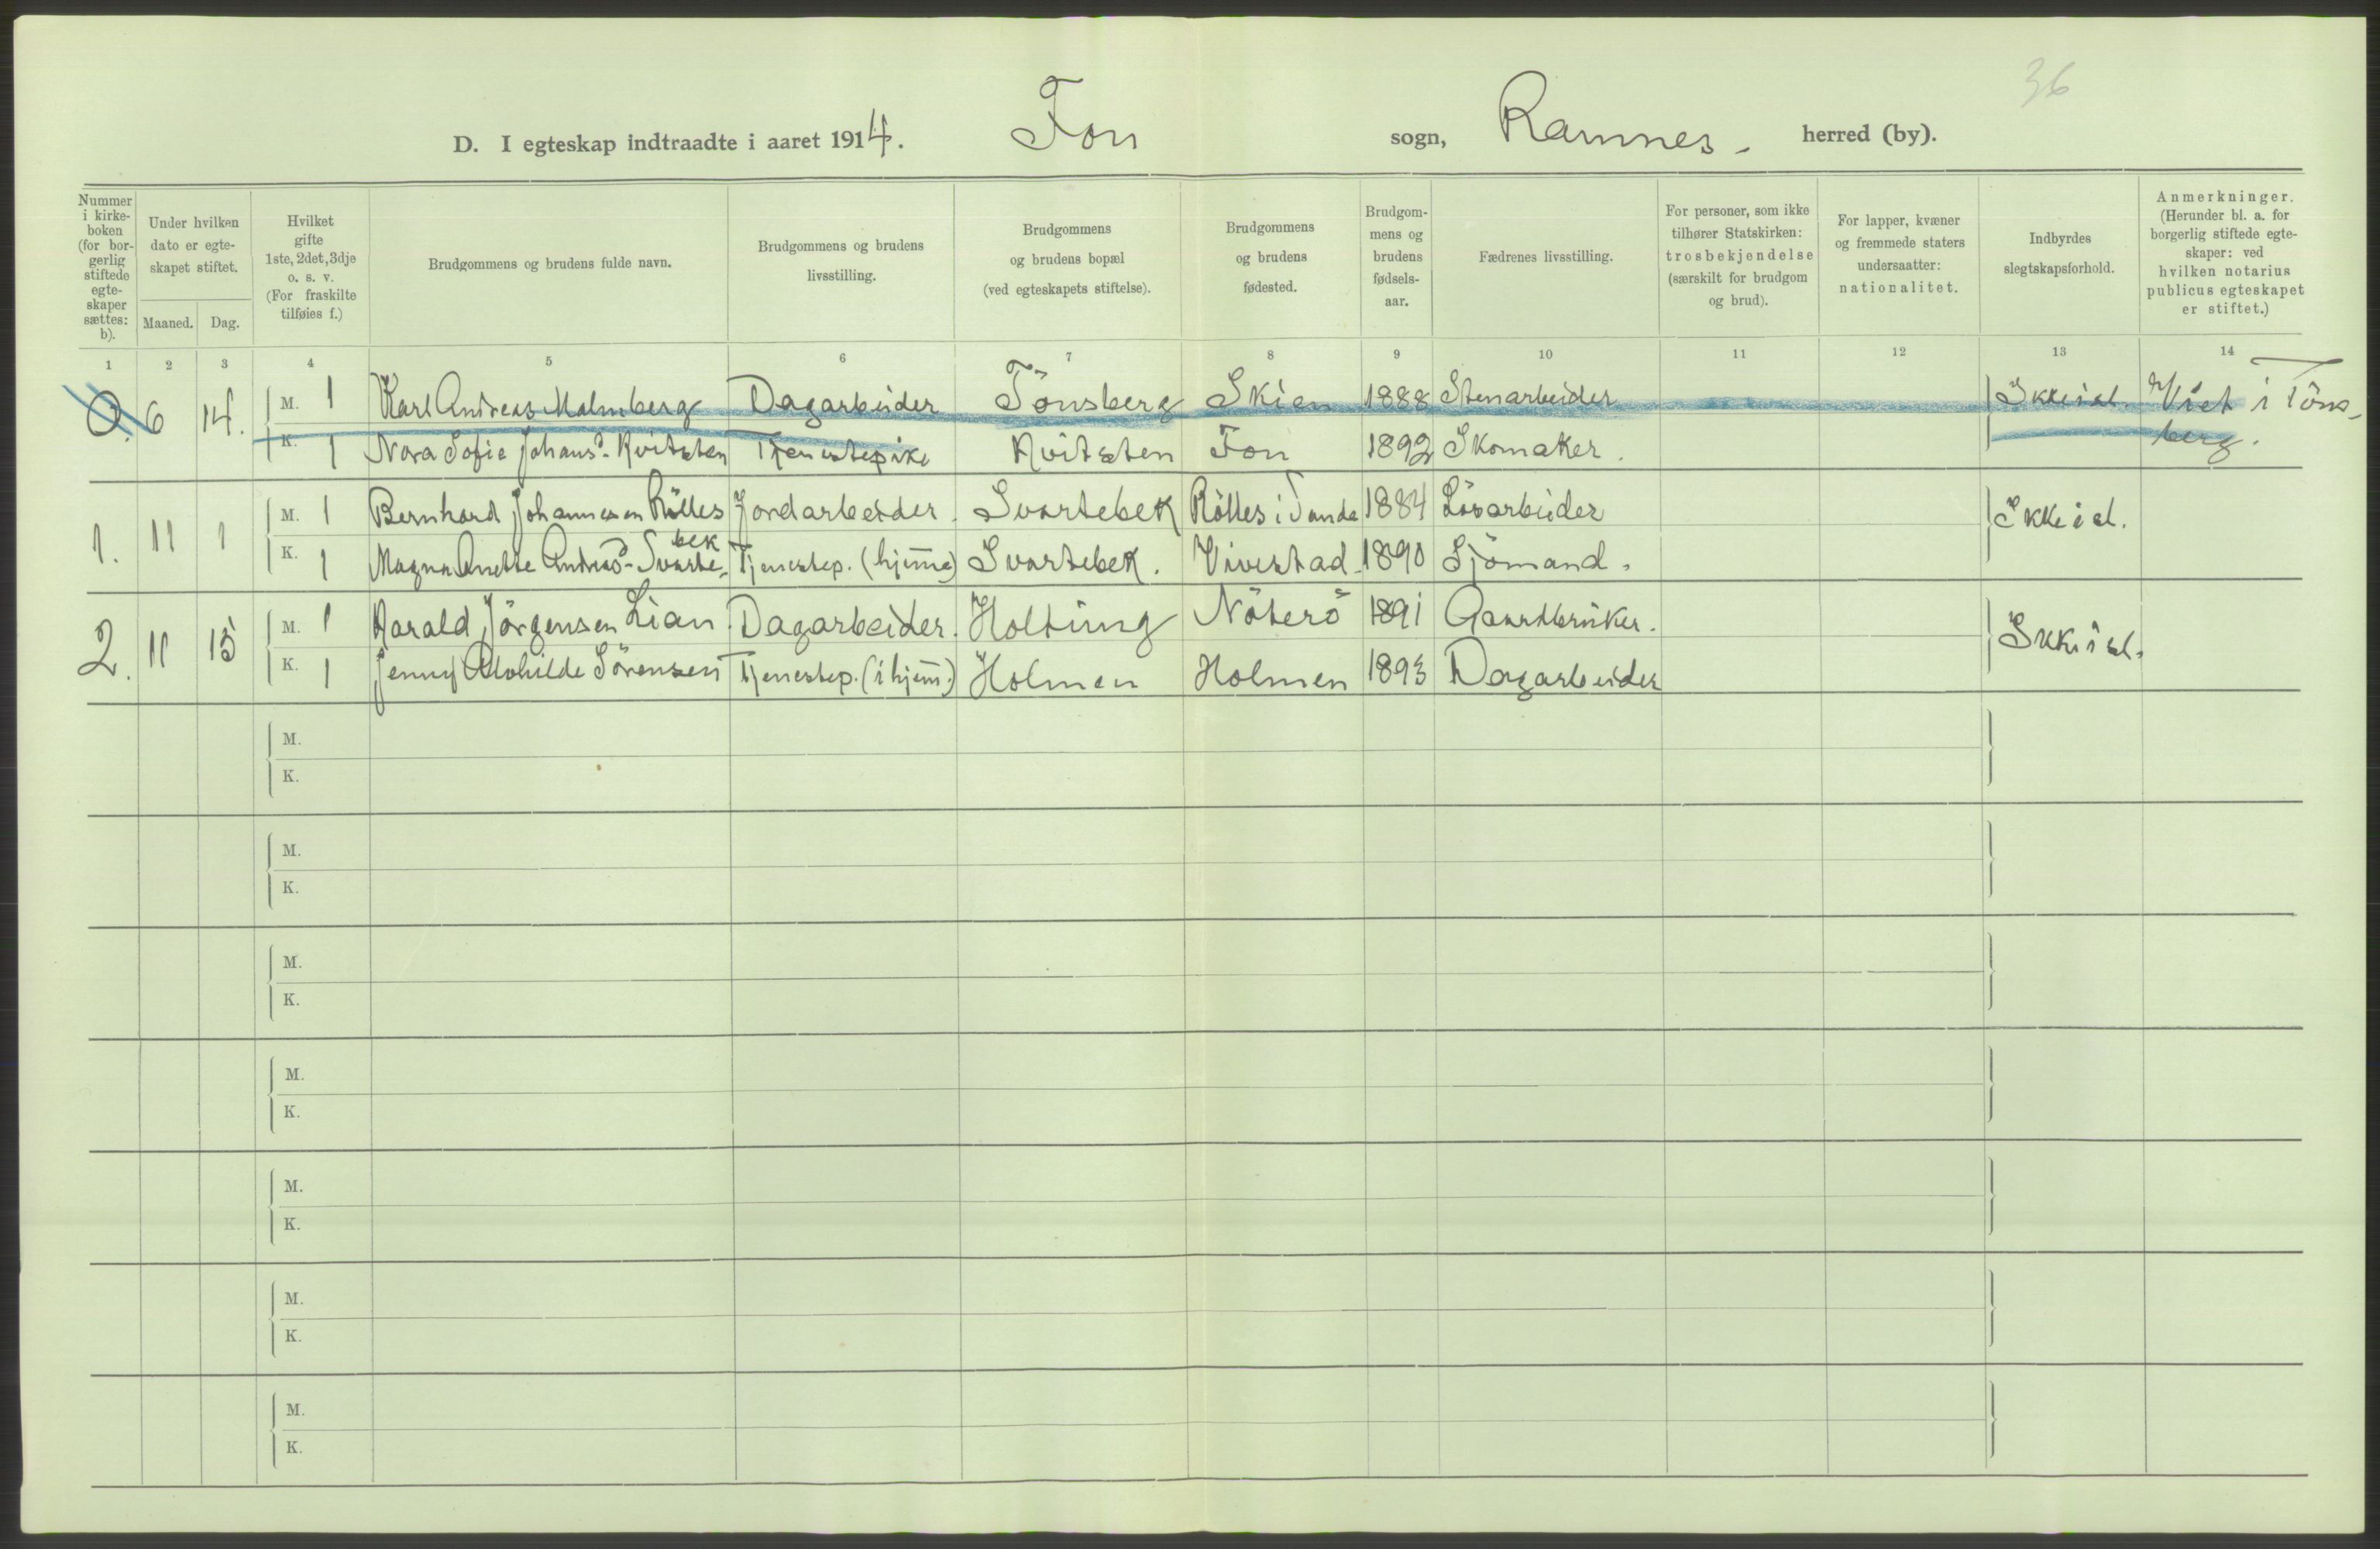 36
D. I egteskap indtraadte i aaret 1914. Fon sogn, Ramnes. herred (by).
Nummer i kirke-boken (for bor-gerlig stiftede egte-skaper sættes: b).
Under hvilken dato er egte-skapet stiftet.
Maaned. Dag.
Hvilket gifte 1ste, 2det, 3dje o. s. v. (For fraskilte tilføies f.)
Brudgommens og brudens fulde navn.
Brudgommens og brudens livsstilling.
Brudgommens og brudens bopæl (ved egteskapets stiftelse).
Brudgommens og brudens fødested.
Brudgom-mens og brudens fødsels-aar.
Fædrenes livsstilling.
For personer, som ikke tilhører Statskirken: trosbekjendelse (særskilt for brudgom og brud).
For lapper, kvæner og fremmede staters undersaatter: nationalitet.
Indbyrdes slegtskapsforhold.
Anmerkninger. (Herunder bl. a. for borgerlig stiftede egte-skaper: ved hvilken notarius publicus egteskapet er stiftet.)
1 2 3 4 5 6 7 8 9 10 11 12 13 14
0. 6 14. M. 1 Karl Andreas Malmberg Dagarbeider Tönsberg Skien 1888 Stenarbeider Ikke i sl. Viet i Töns-
K. 1 Nora Sofie Johansd. Kvitsten Tjenestepike Kvitsten Fon 1892 Skomaker. berg.
1. 11 1 M. 1 Bernhard Johannesen Rölles Jordarbeider. Svartebek Rölles i Sande 1884 Lösarbeider Ikke i sl.
K. 1 Magna Anette Andreasd. Svarte-bek Tjenestep. (hjeme) Svartebek. Vivestad 1890 Sjömand.
2. 11 15 M. 1 Harald Jörgensen Lian. Dagarbeider. Holtung Nöterö 1891 Gaardbruker. Ikke i sl.
K. 1 Jenny Alvhilde Sörensen Tjenestep. (i hjem.) Holmen Holmen 1893 Dagarbeider
M.
K.
M.
K.
M.
K.
M.
K.
M.
K.
M.
K.
M.
K.